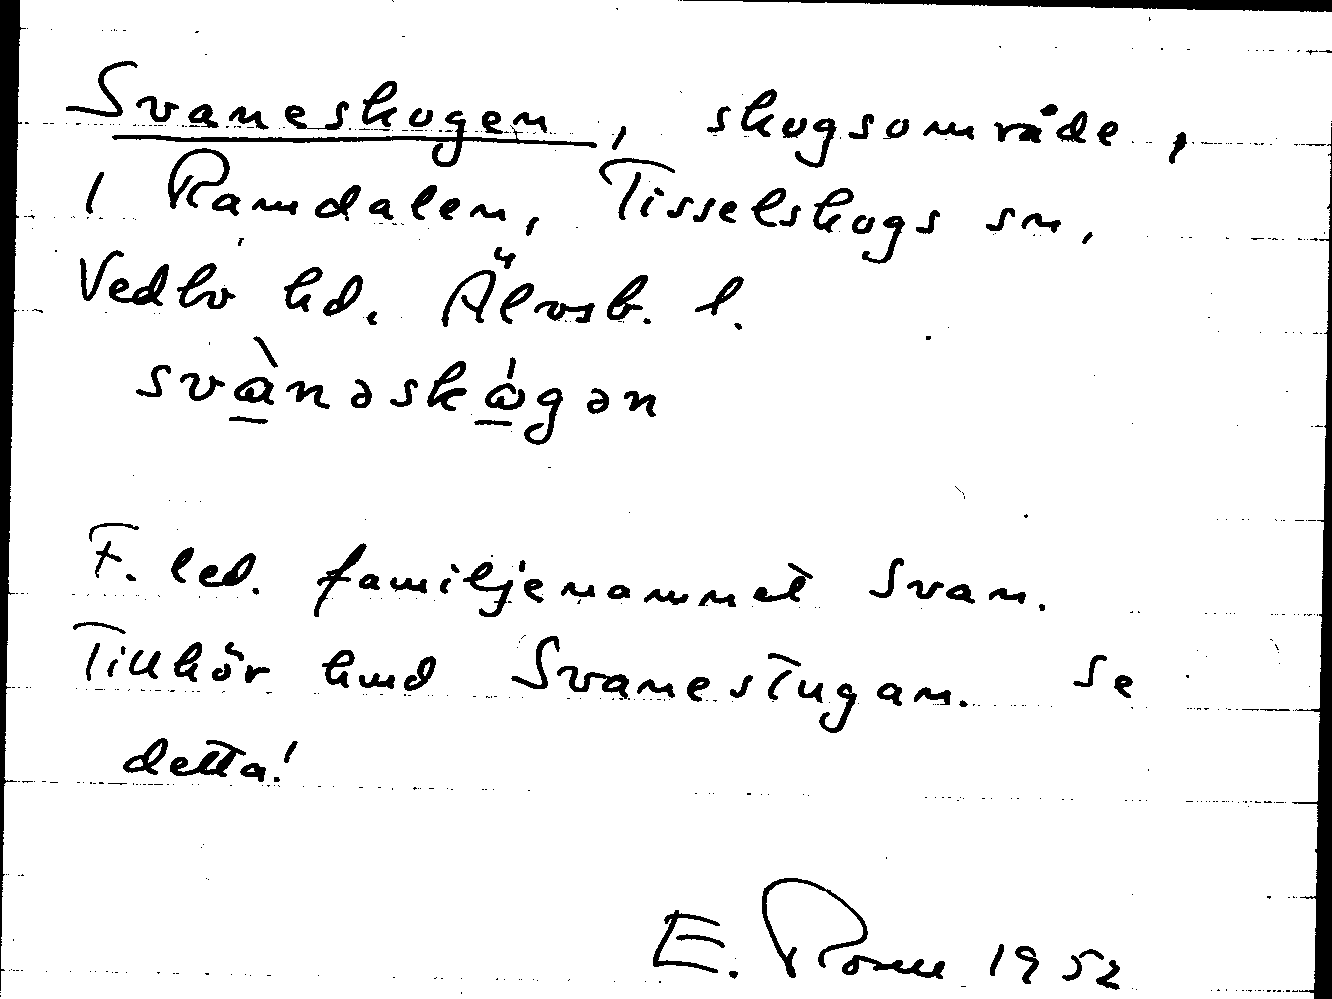 Svaneskogen, skogsområde,
i Ramdalen, Tisselskogs sn,
Vedbo hd. Älvsb. l.
svànəskågən
F. led. familjenamnet Svan.
Tillhör hmd Svanestugan. Se
detta!
E. Rosell 1952